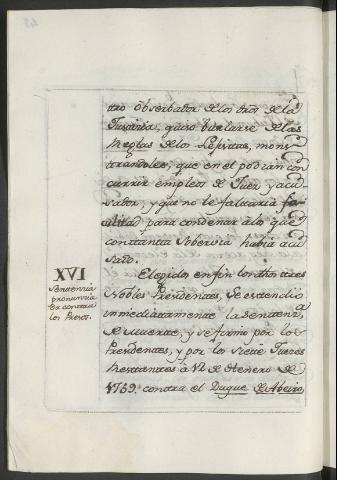 tro Observador de los otros de la
Tusania, quiso burlarse de las
Reglas de los Jesuitas, mos
trandoles, que en el podian con
currir empleos de Juez y acu-
sador, y que no le faltaria fa-
cilidad para condenar à los que
con tanta Sobervia havia acu
sado.
XVI
Sentencia
pronuncia
da contra
los Presos.
Elegidos en fin los otros tres
Nobles Presidentes, Se estendiò
inmediatamente la Sentencia
de muerte, y se firmò por los
Presidentes, y por los Siete Juezes
Restantes à 12 de Henero de
1759. contra el Duque de Abeiro